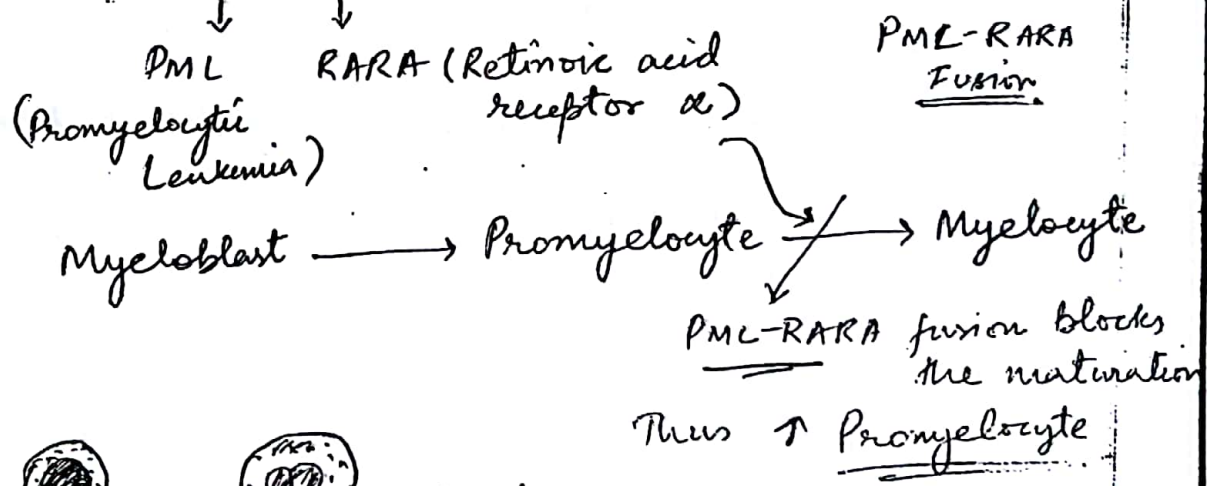 PML RARA (Retinoic acid receptor α)
(Promyelocytic Leukemia)
PML-RARA
Fusion
Myeloblast → Promyelocyte → Myelocyte
PML-RARA fusion blocks
the maturation
Thus ↑ Promyelocyte